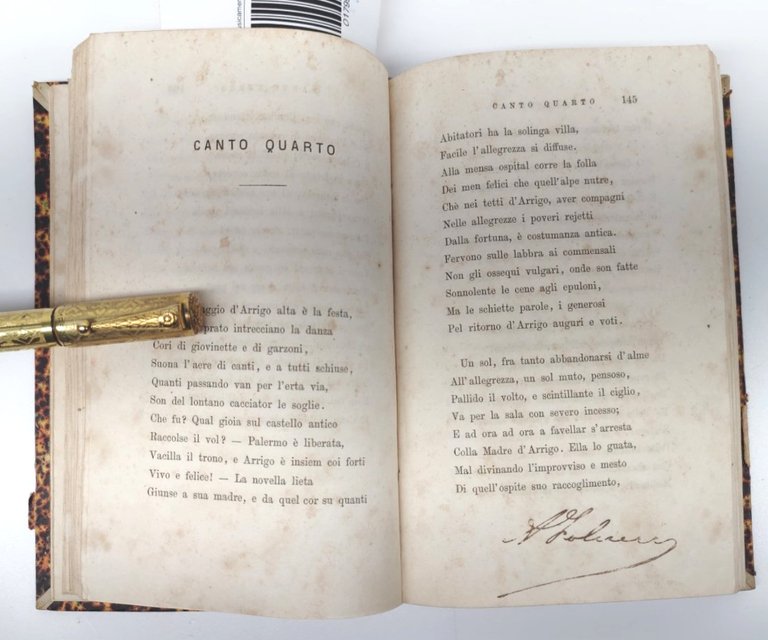 CANTO QUARTO
ggio d'Arrigo alta è la festa,
prato intrecciano la danza
Cori di giovinette e di garzoni,
Suona l'aere di canti, e a tutti schiuse,
Quanti passando van per l'erta via,
Son del lontano cacciator le soglie.
Che fu? Qual gioia sul castello antico
Raccolse il vol? — Palermo è liberata,
Vacilla il trono, e Arrigo è insiem coi forti
Vivo e felice! — La novella lieta
Giunse a sua madre, e da quel cor su quanti
CANTO QUARTO 145
Abitatori ha la solinga villa,
Facile l'allegrezza si diffuse.
Alla mensa ospital corre la folla
Dei men felici che quell'alpe nutre,
Chè nei tetti d'Arrigo, aver compagni
Nelle allegrezze i poveri rejetti
Dalla fortuna, è costumanza antica.
Fervono sulle labbra ai commensali
Non gli ossequi vulgari, onde son fatte
Sonnolente le cene agli epuloni,
Ma le schiette parole, i generosi
Pel ritorno d'Arrigo auguri e voti.
Un sol, fra tanto abbandonarsi d'alme
All'allegrezza, un sol muto, pensoso,
Pallido il volto, e scintillante il ciglio,
Va per la sala con severo incesso;
E ad ora ad ora a favellar s'arresta
Colla Madre d'Arrigo. Ella lo guata,
Mal divinando l'improvviso e mesto
Di quell'ospite suo raccoglimento,